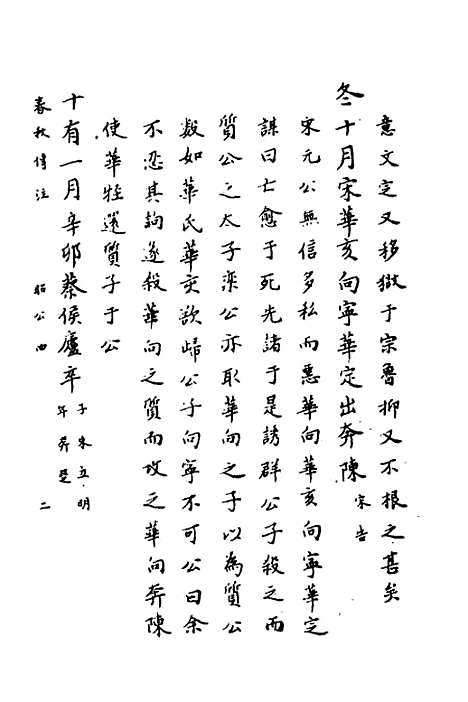 意文定又移獄于宗魯抑又不根之甚矣
冬十月宋華亥向寧華定出奔陳宋告
宋元公無信多私而惡華向華亥向寧華定
謀曰亡愈于死先諸于是誘群公子殺之而
質公之太子欒公亦取華向之子以為質公
數如華氏華亥欲歸公子向寧不可公曰余
不忍其詢遂殺華向之質而攻之華向奔陳
使華牼還質子于公
十有一月辛卯蔡侯廬卒子朱立明年奔楚
春秋傳注 昭公四 二